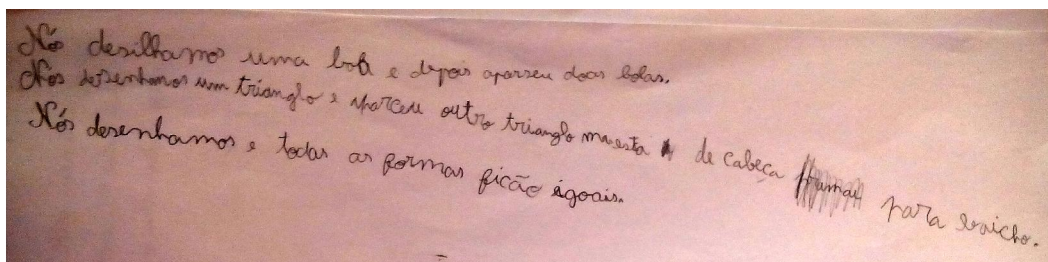 Nós desilhamos uma bola e depois aparseu doas bolas.
Nós desenhamos um trianglo e aparceu outro trianglo ma esta de cabeça para baicho.
Nós desenhamos e todas as formas ficão igoais.